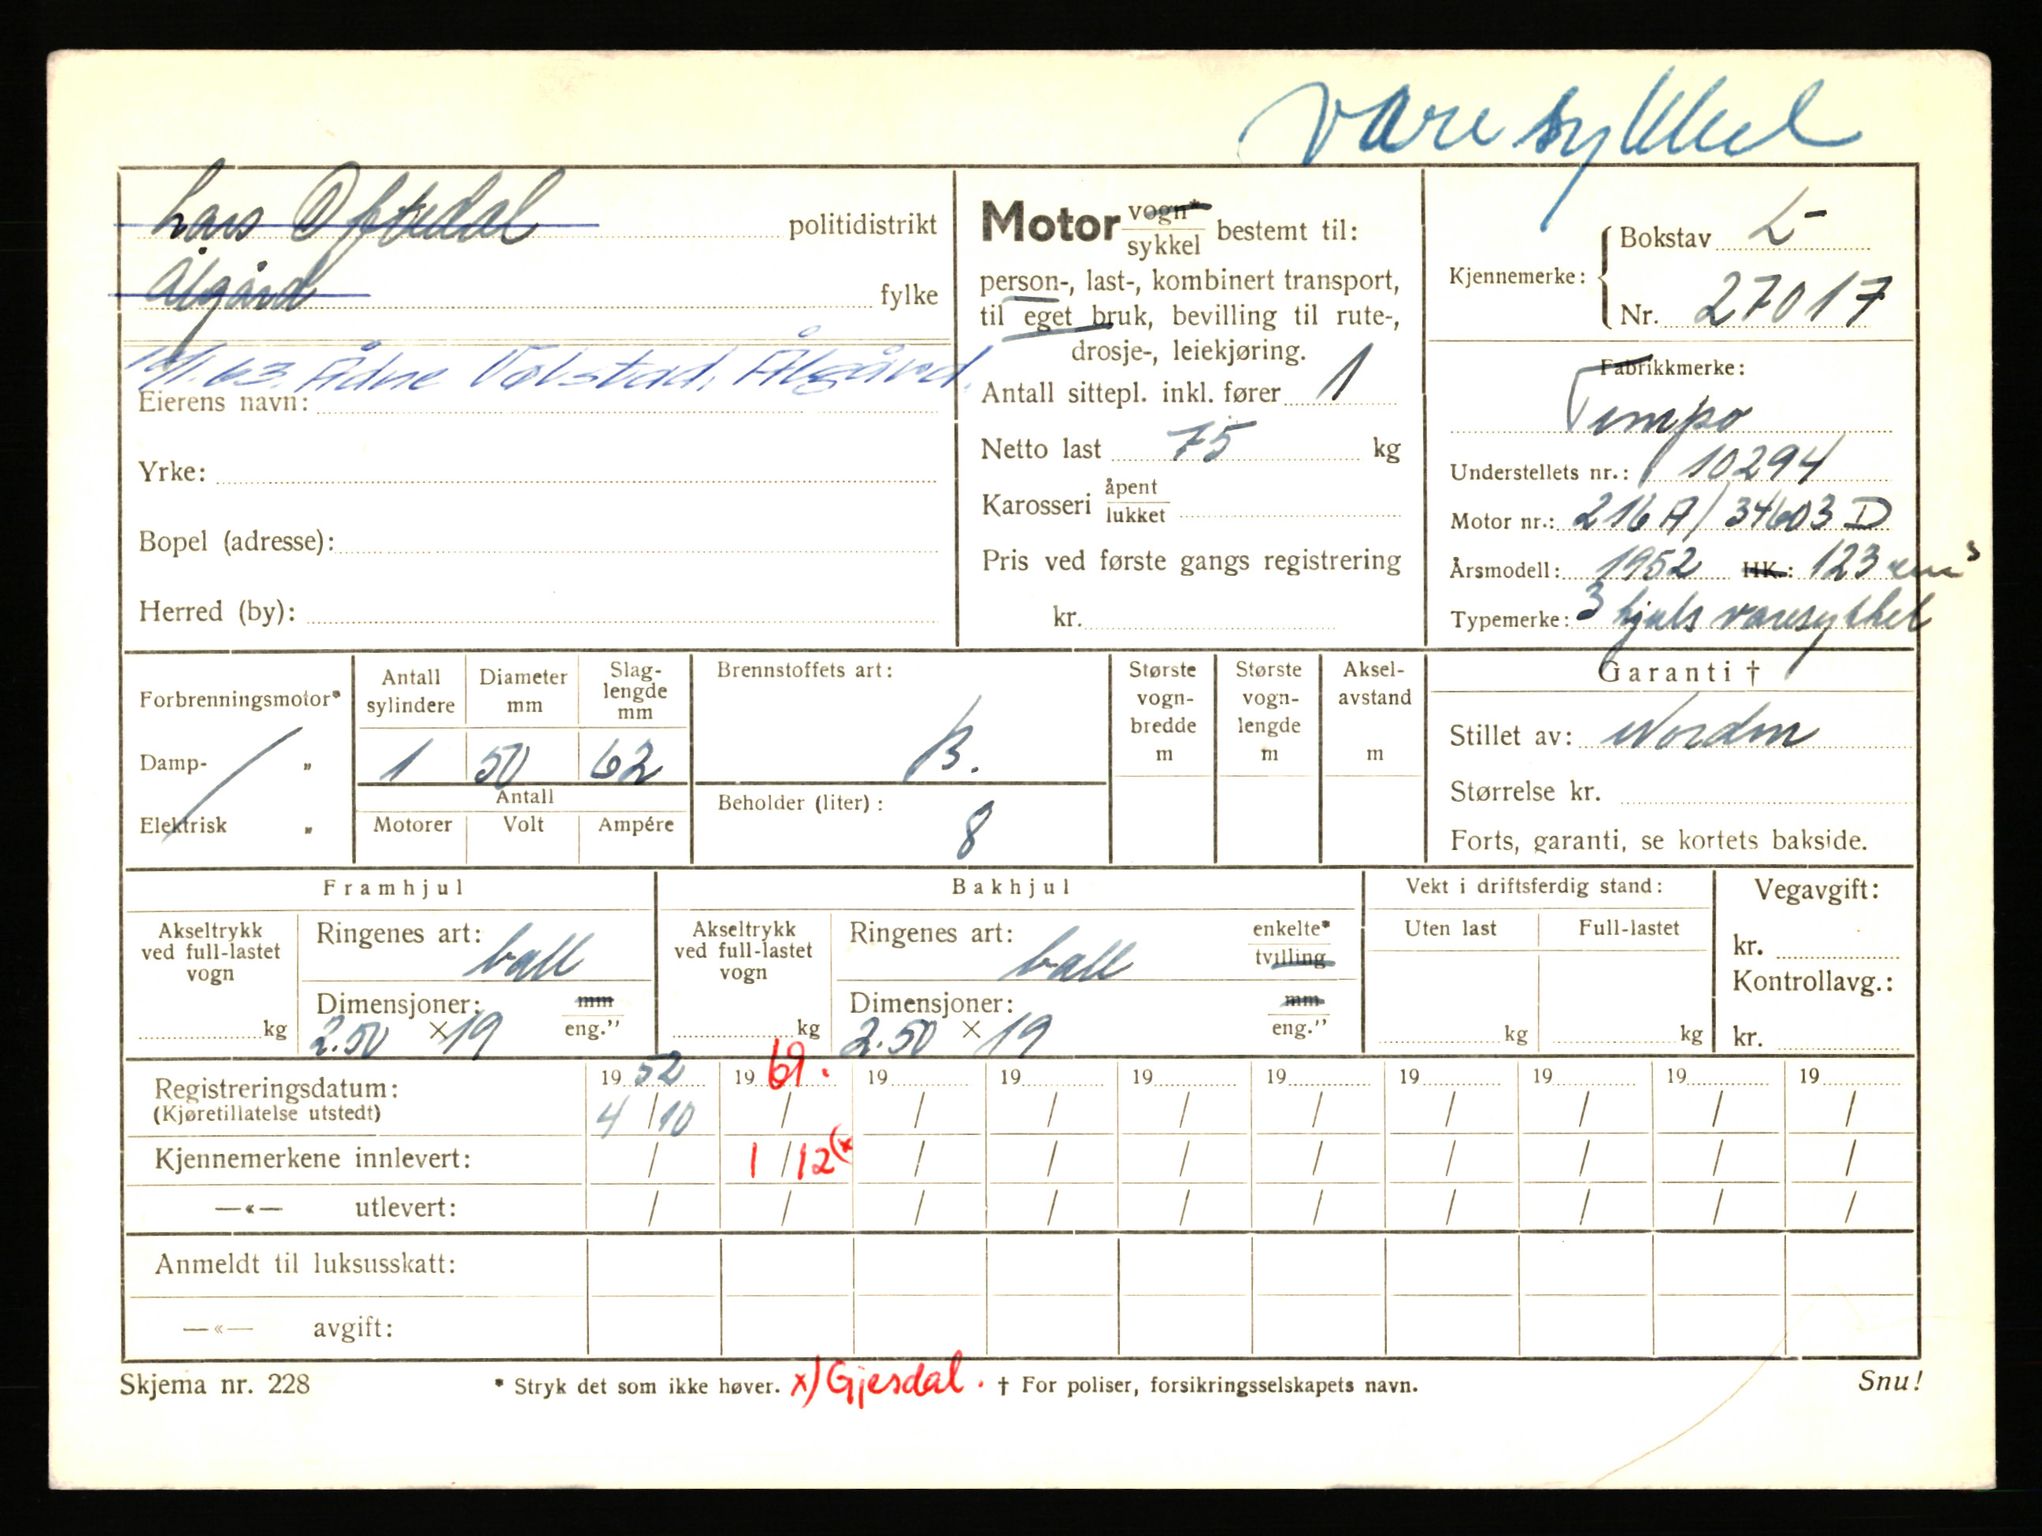 Varesykkel
Lars Oftedal politidistrikt
Ålgård fylke
1/63. Ådne Vølstad, Ålgård.
Eierens navn:
Yrke:
Bopel (adresse):
Herred (by):
Motor vogn* sykkel bestemt til:
person-, last-, kombinert transport,
til eget bruk, bevilling til rute-,
drosje-, leiekjøring.
Antall sittepl. inkl. fører 1
Netto last 75 kg
Karosseri åpent lukket
Pris ved første gangs registrering
kr.
Kjennemerke:
Bokstav L-
Nr. 27017
Fabrikkmerke:
Tempo
Understellets nr.: 10294
Motor nr.: 216 A/34603 D
Årsmodell: 1952 HK.: 123 cm³
Typemerke: 3 hjuls varesykkel
Forbrenningsmotor*
Damp- „
Elektrisk „
Antall sylindere 1
Diameter mm 50
Slag-lengde mm 62
Antall
Motorer Volt Ampére
Brennstoffets art:
B.
Beholder (liter):
8
Største vogn-bredde m
Største vogn-lengde m
Aksel-avstand m
Garanti †
Stillet av: Norden
Størrelse kr.
Forts, garanti, se kortets bakside.
Framhjul
Akseltrykk ved full-lastet vogn
kg
Ringenes art: ball
Dimensjoner: mm
2.50 × 19 eng.”
Bakhjul
Akseltrykk ved full-lastet vogn
kg
Ringenes art: ball enkelte* tvilling
Dimensjoner: mm
2.50 × 19 eng.”
Vekt i driftsferdig stand:
Uten last Full-lastet
kg kg
Vegavgift:
kr.
Kontrollavg.:
kr.
Registreringsdatum: 1952 1969. 19 19 19 19 19 19 19 19
(Kjøretillatelse utstedt) 4/10 / / / / / / / / /
Kjennemerkene innlevert: / 1/12 (x / / / / / / / /
—«— utlevert: / / / / / / / / / /
Anmeldt til luksusskatt:
—«— avgift:
Skjema nr. 228 * Stryk det som ikke høver. x) Gjesdal. † For poliser, forsikringsselskapets navn. Snu!